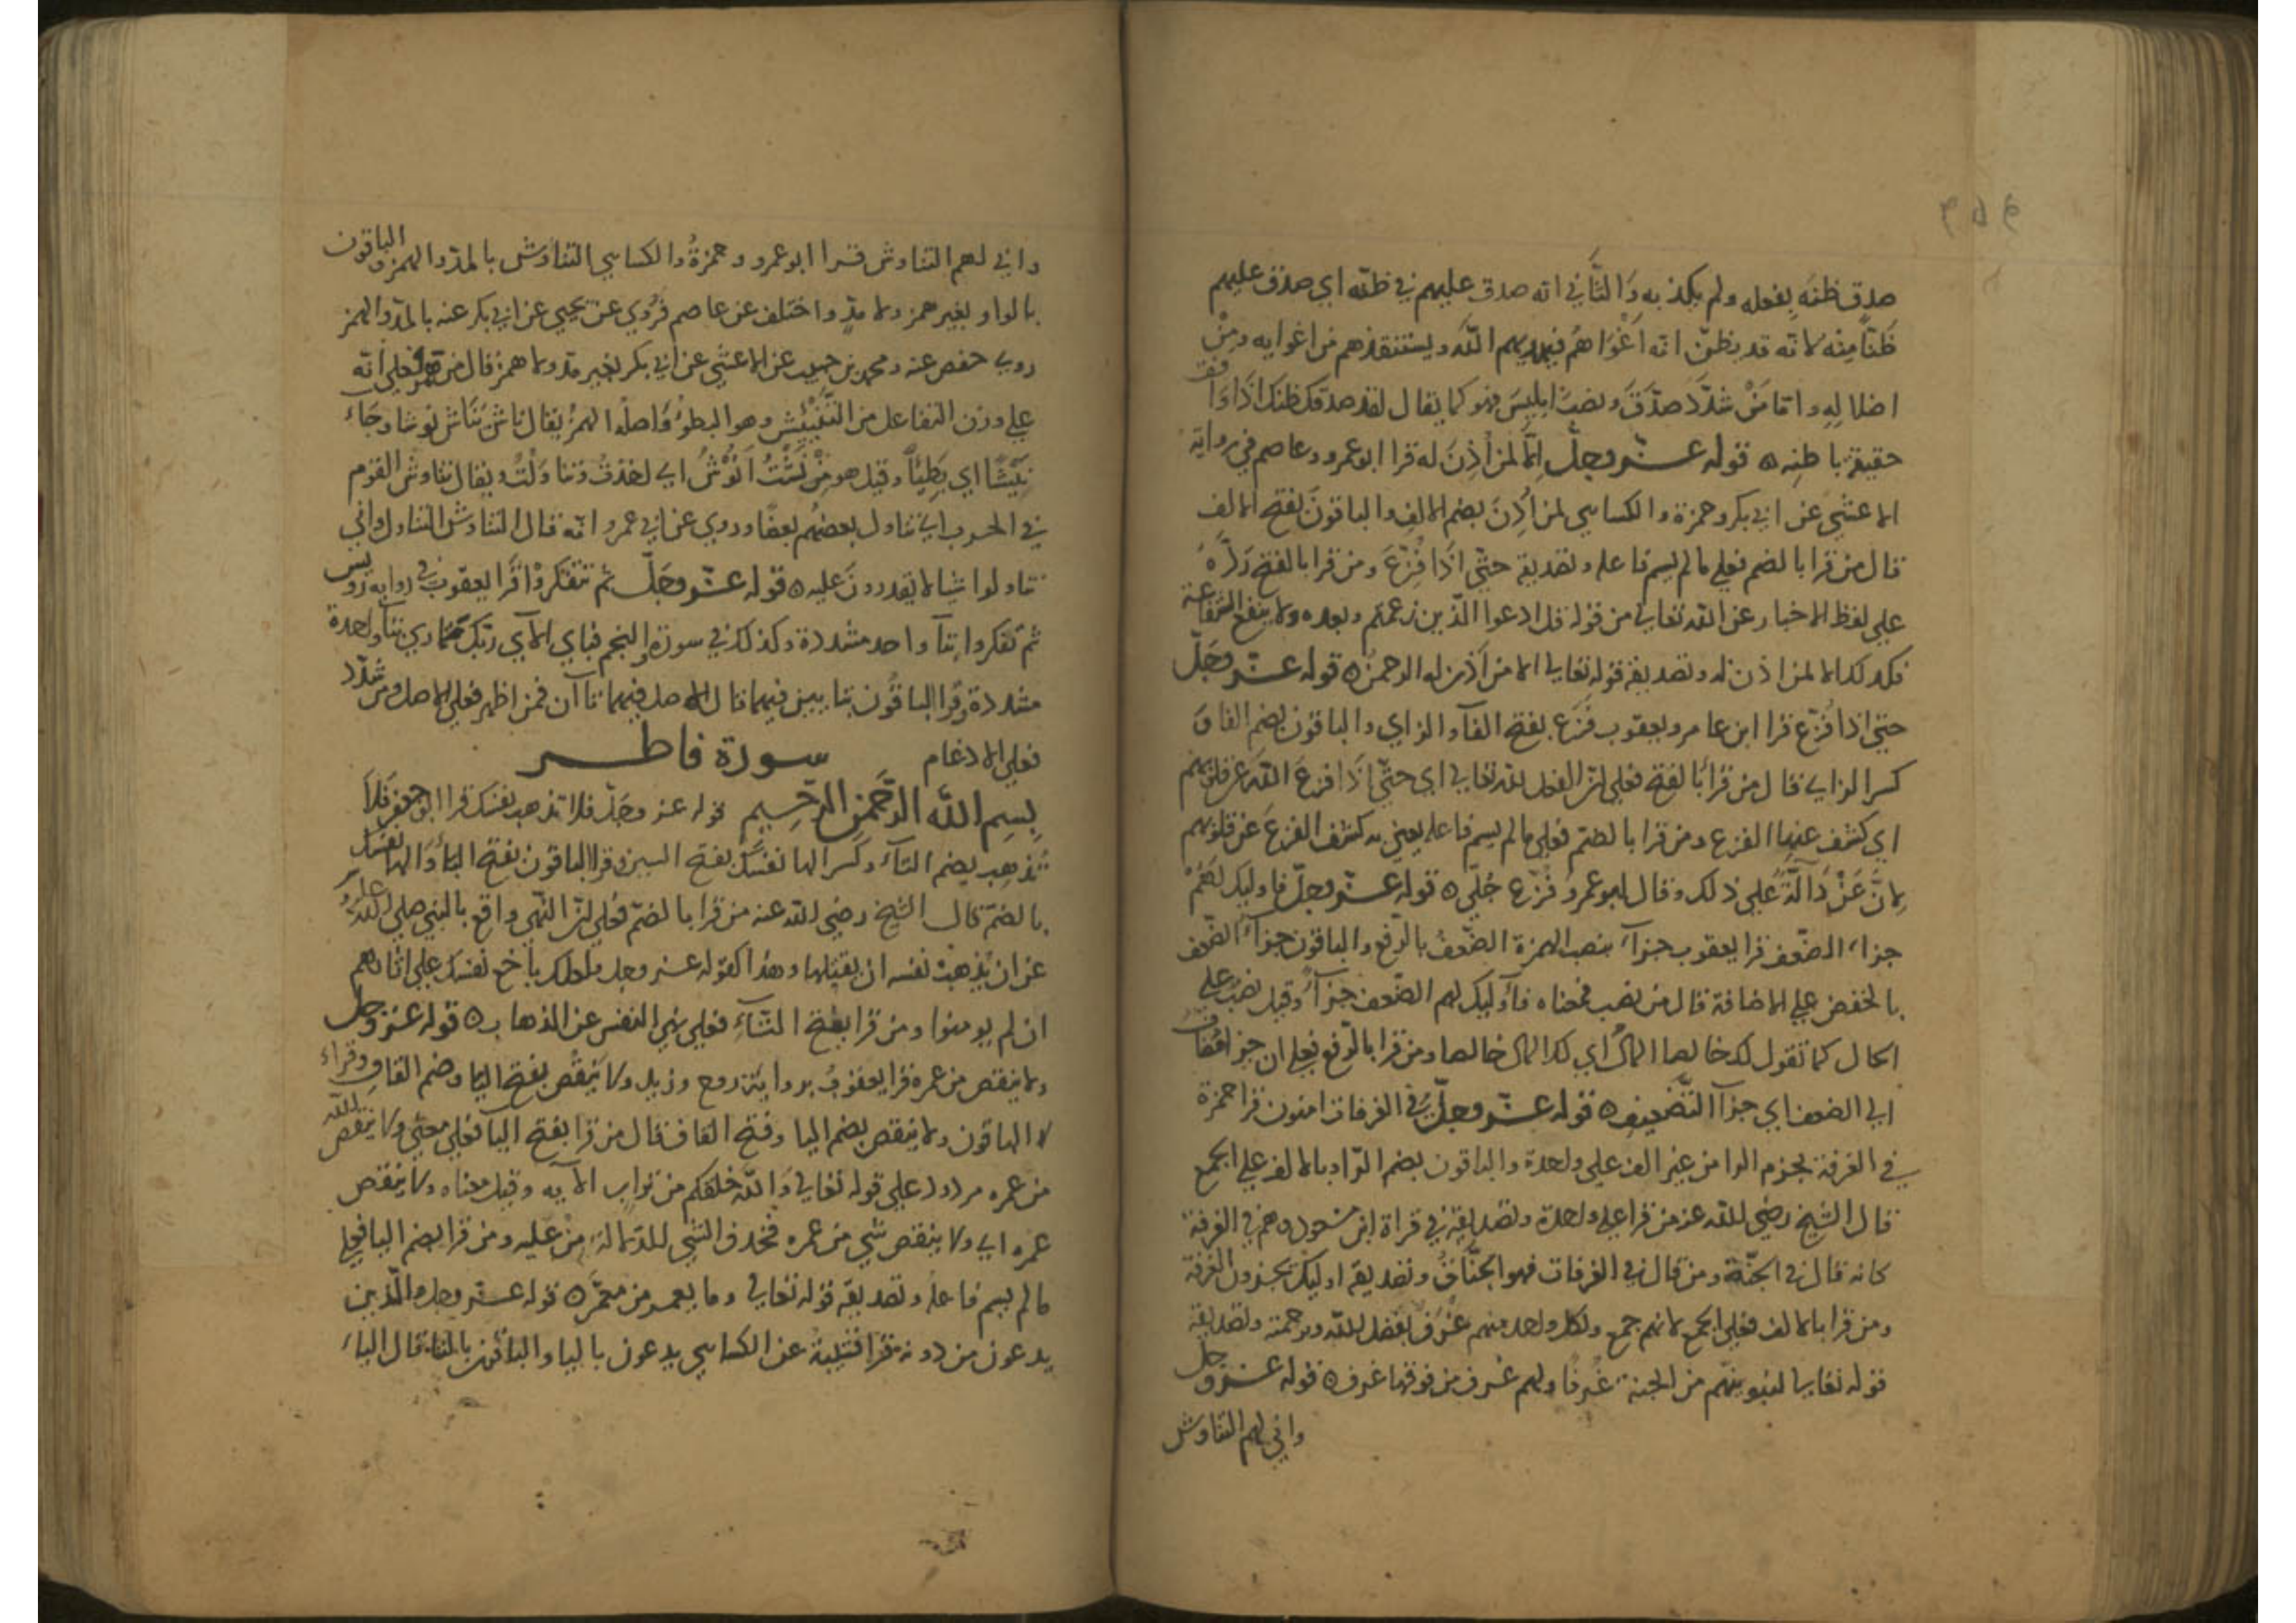 صدق ظنّه بفعله ولم يكذبه وَالثّاني انه صدق عليهم في ظنّه اي صدق عليهم
ظنًّا مِنه لانه قد يظنّ انه اَغْوَاهُم فيهديهم اللّه ويستنقذهم من اغوايه ومِنْ
اضلالِهِ واما مَنْ شدَّدَ صدّقَ ونصبَ ابليسَ فهو كما يقال لقد صدقك ظنك اذا وافق
حقيقة باطِنِه ه قوله عــز وجلّ اِلّا لمن أَذِنَ له قرا ابو عمرو وعاصم في رواية
الاعشي عن ابي بكر وحمزة والكسايي لمن أُذِنَ بضم الالف والباقونَ بفتح الالف
قال من قرا بالضم فعلي ما لم يسم فاعله وتصديقه حتّي اذا فُزّعَ ومن قرا بالفتح ردَّهُ
علي لفظ الاخبار عن اللّه تعالي من قوله قل ادعوا الذين زعمتم وبعده ولا ينفع الشفاعة
فكذلك الا لمن اذن له وتصديقه قوله تعالي الا من أَذن له الرحمن ه قوله عــز وجَلّ
حتي اذا فُزّع قرا ابن عامر ويعقوب فَزّع بفتح الفآ والزاي والباقون بضم الفا وَ
كسر الزاي قال من قرأ بالفتح فعلي ان الفعل للّه تعالي اي حتّي اذا فزع اللّه عن قلوبهم
اي كشف عنها الفزع ومن قرا بالضم فعلي ما لم يسم فاعله يعني به كشف الفزع عن قلوبهم
لِانَّ عَنْ دَالَّةٌ علي ذلك وقال ابو عمرو فُزّع جُلّي ه قوله عــز وجلّ فاوليك لَهُمْ
جزاء الضعف قرا يعقوب جزآءً بنصب الهمزة الضّعفُ بالرفع والباقون جزآءُ الضّعف
بالخفض علي الاضافة قال من نصب فمعناه فأوليك لهم الضعف جزآءً وقيل نصب علي
الحال كما تقول لك خالصا المالُ اي لك المال خالصا ومن قرا بالرفع فعلي ان جزا مُضاف
الي الضعف اي جزآء التّضعيف ه قوله عــز وجلّ في الغرفات امنون قرا حمزة
في الغرفة بجزم الرا من غير الف علي واحدة والباقون بضم الرّا وبالالف علي الجمع
قال الشيخ رضي اللّه عنه من قرا علي واحدة وتصديقه في قراة ابن مسعود وهم في الغرفة
كانه قال في الجنّة ومن قال في الغرفات فهو الجنّات وتصديقه اوليك يجزون الغرفة
ومن قرا بالالف فعلي الجمع لانهم جمع ولكل واحد منهم غُرَفٌ بفضل اللّه ورحمته وتصديقه
قوله تعالي لنبوينهم من الجنة غُرفًا ولهم غــرف من فوقها غرف ه قوله عــز وجل
واني لهم التناوش
واني لهم التناوش قــرا ابو عمرو وحمزةُ والكسايي التناؤش بالمدّ والهمز والباقون
بالواو بغير همز ولا مدٍّ واختلف عن عاصم فرُوي عن يحيي عن ابي بكر عنه بالمدّ والهمز
روي حفص عنه ومحمد بن حبيب عن الاعشي عن ابي بكر بغير مدّ ولا همز قال من همز فعلي انه
علي وزن التفاعل من النَّئِيْش وهو البطوُ وَاصلُه الهمزُ يقال ناشَ يَنَاش نوشا وجاءَ
نئيشًا اي بَطِيئاً وقيل هو مِنْ نُشْتُ اَنُوْشُ اي اخذتُ وتناوَلْتُ ويقال تناوش القوم
في الحرب اي تناول بعضهُم بعضًا وروي عن ابي عمرو انه قال التناوش التناول واني
تناولوا شيا لا يقدرونَ عليه ه قوله عــز وجَلّ ثم تتفكروْا قرا يعقوب في رواية رويس
ثمّ تفكروا بتآ واحد مشددة وكذلك في سورة والنجم فباي الآي ربّك تّماري بتآ واحدة
مشددة وقرا الباقون بتا يين فيهما قال الاصل فيهما تاآن فمن اظهر فعلي الاصل ومن شدّد
فعلي الادغام سورة فاطــر
بِسمِ اللّه الرّحمٰنِ الرّحِيمِ قوله عز وجَلّ فلا تذهب نفسك قرا ابو جعفر فلَا
تُذهِب بضم التآء وكسر الها نفسَك بفتح السين وقرا الباقون بفتح التا وَالها نفسُك
بالضمّ قال الشيخ رضي اللّه عنه من قرا بالضمّ فعلي انّ النهي واقع بالنبي صلي اللّه عليه
عن ان يُذهبَ نفسه ان يقتلها وهذا كقوله عــز وجل فلعلك باخع نفسَك علي اثارهم
ان لم يومنوا ومن قرا بفتح التّآءِ فعلي نهي النفس عن الذهاب ه قوله عــز وجل
ولا ينقص من عمره قرا يعقوبُ برواية روح وزيد ولا يَنقُص بفتح اليا وضم القاف وقراء
لا الباقون ولا ينقص بضم اليا وفتح القاف قال من قرا بفتح اليا فعلي معني ولا ينقص اللّه
من عمره مردود علي قوله تعالي وَاللّه خلقكم من تراب الآيه وقيل معناه ولا ينقص
عمره اي ولا ينقص شي من عمره فحذف الشي للدّلالة مِنْ عليه ومن قرا بضم اليا فعلي
ما لم يسم فاعلُه وتصديقه قوله تعالي وما يعمــر من معمَّرٍ ه قوله عــز وجل والّذين
يدعون من دونه قرا قتيبة عن الكسايي يدعون باليا والباقون بالتا قال الياءُ